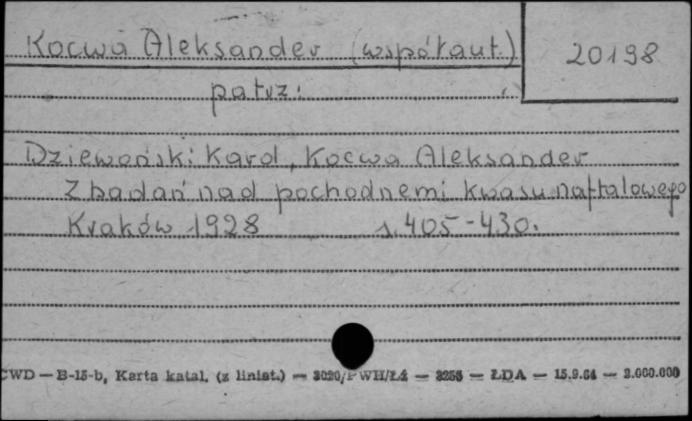 Kocwa Aleksander (współaut.)
20198
patrz:
Dziewoński Karol, Kocwa Aleksander
Z badań nad pochodnemi kwasu naftalowego
Kraków 1928 s. 405-430.
CWD — B-15-b, Karta katal. (z liniat.) — 3020/PWH/Ł4 — 3256 — ŁDA — 15.9.64 — 2.000.000